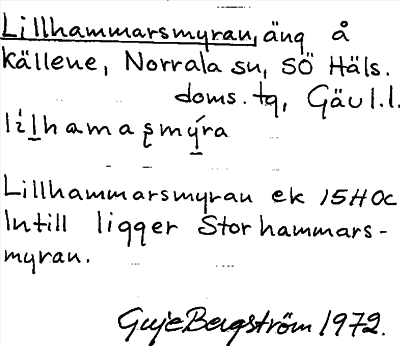 Lillhammarsmyran, äng å
källene, Norrala sn, SÖ Häls.
doms. tg, Gäv l.l.
lílhamaʂmýra
Lillhammarsmyran ek 15H0c
Intill ligger Storhammars-
myran.
Guje Bergström 1972.